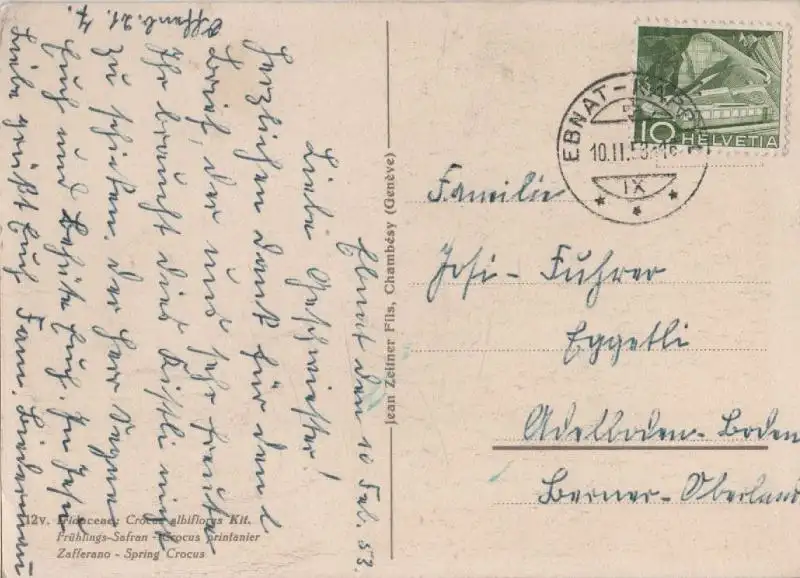 Ebnat den 10 Feb. 53.
Liebe Geschwister!
Herzlichen Dank für den l
Brief, der uns sehr freute
Ihr braucht dies Kistli nicht
zu schicken. Der Herr Segne
Euch und behüte Euch. In Jesu
Liebe grüßt Euch Fam. Biederman
Offenb. 21. 7.
Familie
Josi - Fuhrer
Eggetli
Adelboden-Boden
Berner-Oberland
EBNAT-KAPPEL
10.II.53
IX
10 HELVETIA
Jean Zellner Fils, Chambésy (Genève)
12v. Iridacene: Crocus albiflorus Kit.
Frühlings-Safran - Crocus printanier
Zafferano - Spring Crocus